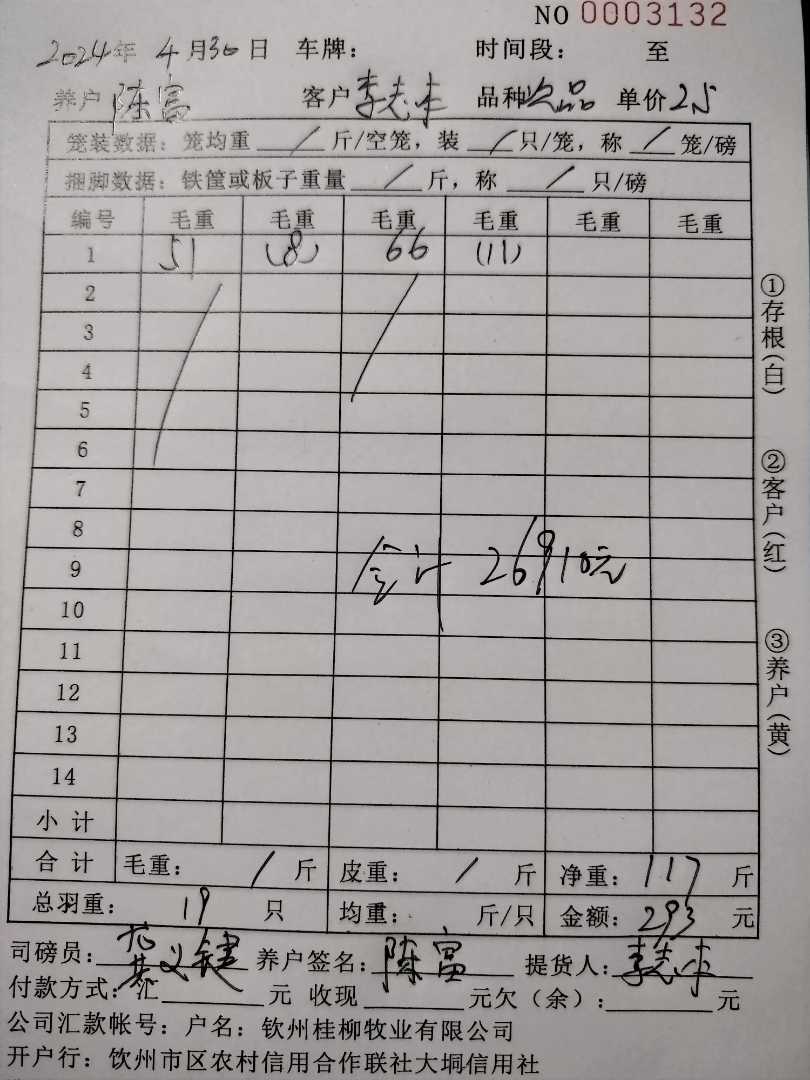 NO 0003132
2024年 4月30日 车牌： 时间段： 至
养户 陈富 客户 李志 品种次品 单价 25
笼装数据：笼均重 / 斤/空笼，装 / 只/笼，称 / 笼/磅
捆脚数据：铁筐或板子重量 / 斤，称 / 只/磅
编号 毛重 毛重 毛重 毛重 毛重 毛重
1 51 (8) 66 (11)
2
3
4
5
6
7
8
9 合计 26910元
10
11
12
13
14
小计
合计 毛重： / 斤 皮重： / 斤 净重：117 斤
总羽重： 19 只 均重： 斤/只 金额：293 元
司磅员： 义键 养户签名：陈富 提货人：李志
付款方式：汇 元 收现 元欠（余）： 元
公司汇款帐号：户名：钦州桂柳牧业有限公司
开户行：饮州市区农村信用合作联社大垌信用社
①存根（白）
②客户（红）
③养户（黄）